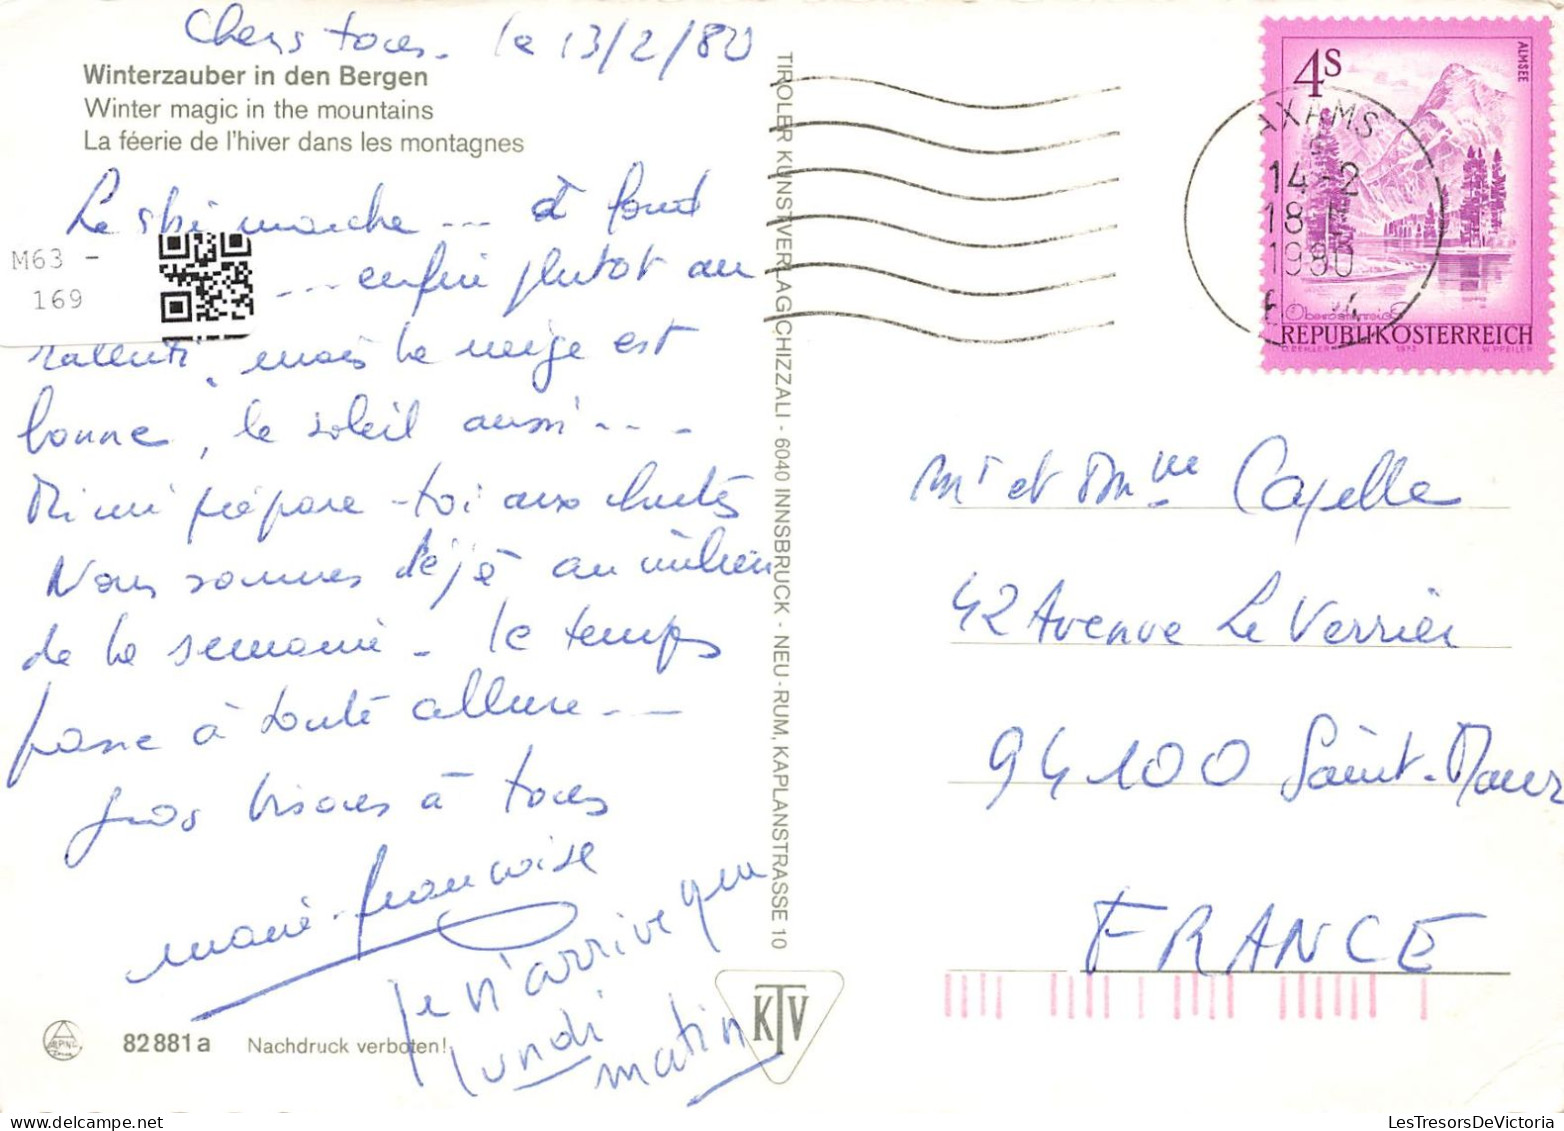 Chers tous. le 13/2/80
Winterzauber in den Bergen
Winter magic in the mountains
La féerie de l'hiver dans les montagnes
Le ski marche ... à fond
... enfin plutot au
ralenti, mais la neige est
bonne, le soleil aussi ...
Mimi prépare-toi aux chutes
Nous sommes déjà au milieu
de la semaine. le temps
passe à toute allure ...
gros bisous à tous
Marie-Françoise
Je n'arrive que
lundi
matin
M63 -
169
82881a Nachdruck verboten!
TIROLER KUNSTVERLAG CHIZZALI - 6040 INNSBRUCK - NEU-RUM, KAPLANSTRASSE 10
KTV
4S
ALMSEE
AXAMS
14-2
18
1980
Oberösterreich
REPUBLIK ÖSTERREICH
1973 W. PFEILER
Mr et Mme Capelle
42 Avenue Le Verrier
94100 Saint-Maur
FRANCE
LesTresorsDeVictoria